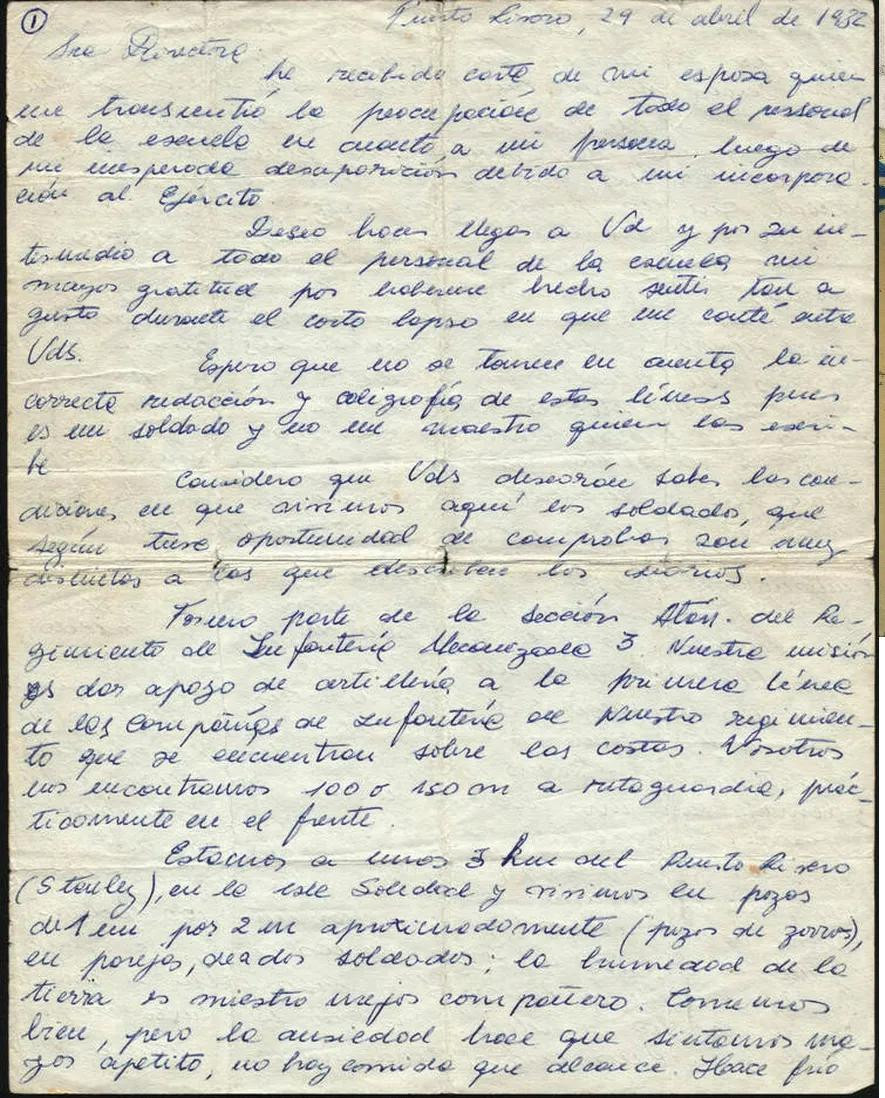 1
Puerto Rivero, 29 de abril de 1982
Sra Directora
he recibido carta de mi esposa quien
me transmitió la preocupación de todo el personal
de la escuela en cuanto a mi persona luego de
mi inesperada desaparición debido a mi incorpora-
ción al Ejército
Deseo hacer llegar a Vd y por su in-
termedio a todo el personal de la escuela mi
mayor gratitud por haberme hecho sentir tan a
gusto durante el corto lapso en que me conté entre
Vds.
Espero que no se tomen en cuenta la in-
correcta redacción y caligrafía de estas líneas pues
es un soldado y no un maestro quien las escri-
be
Considero que Vds desearán saber las con-
diciones en que vivimos aquí los soldados, que
según tuve oportunidad de comprobar son muy
distintas a las que describen los diarios.
Formo parte de la sección Atan. del Re-
gimiento de Infantería Mecanizada 3. Nuestra misión
es dar apoyo de artillería a la primera línea
de las Compañías de Infantería de Nuestro regimien-
to que se encuentran sobre las costas. Nosotros
nos encontramos 100 o 150 m a retaguardia, prác-
ticamente en el frente.
Estamos a unos 3 km del Puerto Rivero
(Stanley), en la isla Soledad y vivimos en pozos
de 1 m por 2 m aproximadamente (pozos de zorros),
en parejas, de a dos soldados; la humedad de la
tierra es nuestro mejor compañero. Comemos
bien, pero la ansiedad hace que sintamos ma-
yor apetito, no hay comida que alcance. Hace frío